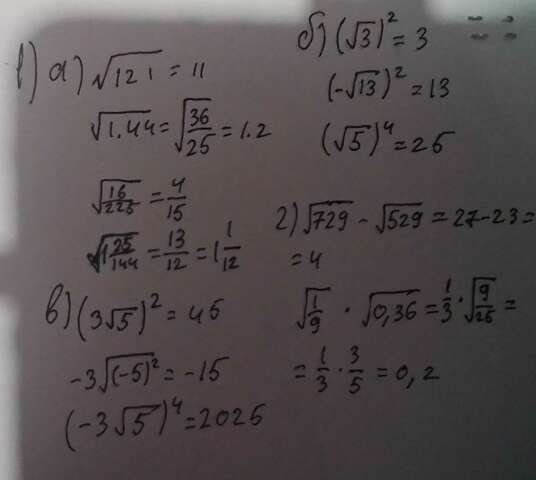 1) а) √121 = 11
√1.44 = √(36/25) = 1.2
√(16/225) = 4/15
√(1 25/144) = 13/12 = 1 1/12
б) (√3)² = 3
(-√13)² = 13
(√5)⁴ = 25
в) (3√5)² = 45
-3√(-5)² = -15
(-3√5)⁴ = 2025
г) √729 - √529 = 27-23 =
= 4
√(1/9) · √0,36 = 1/3 · √(9/25) =
= 1/3 · 3/5 = 0,2